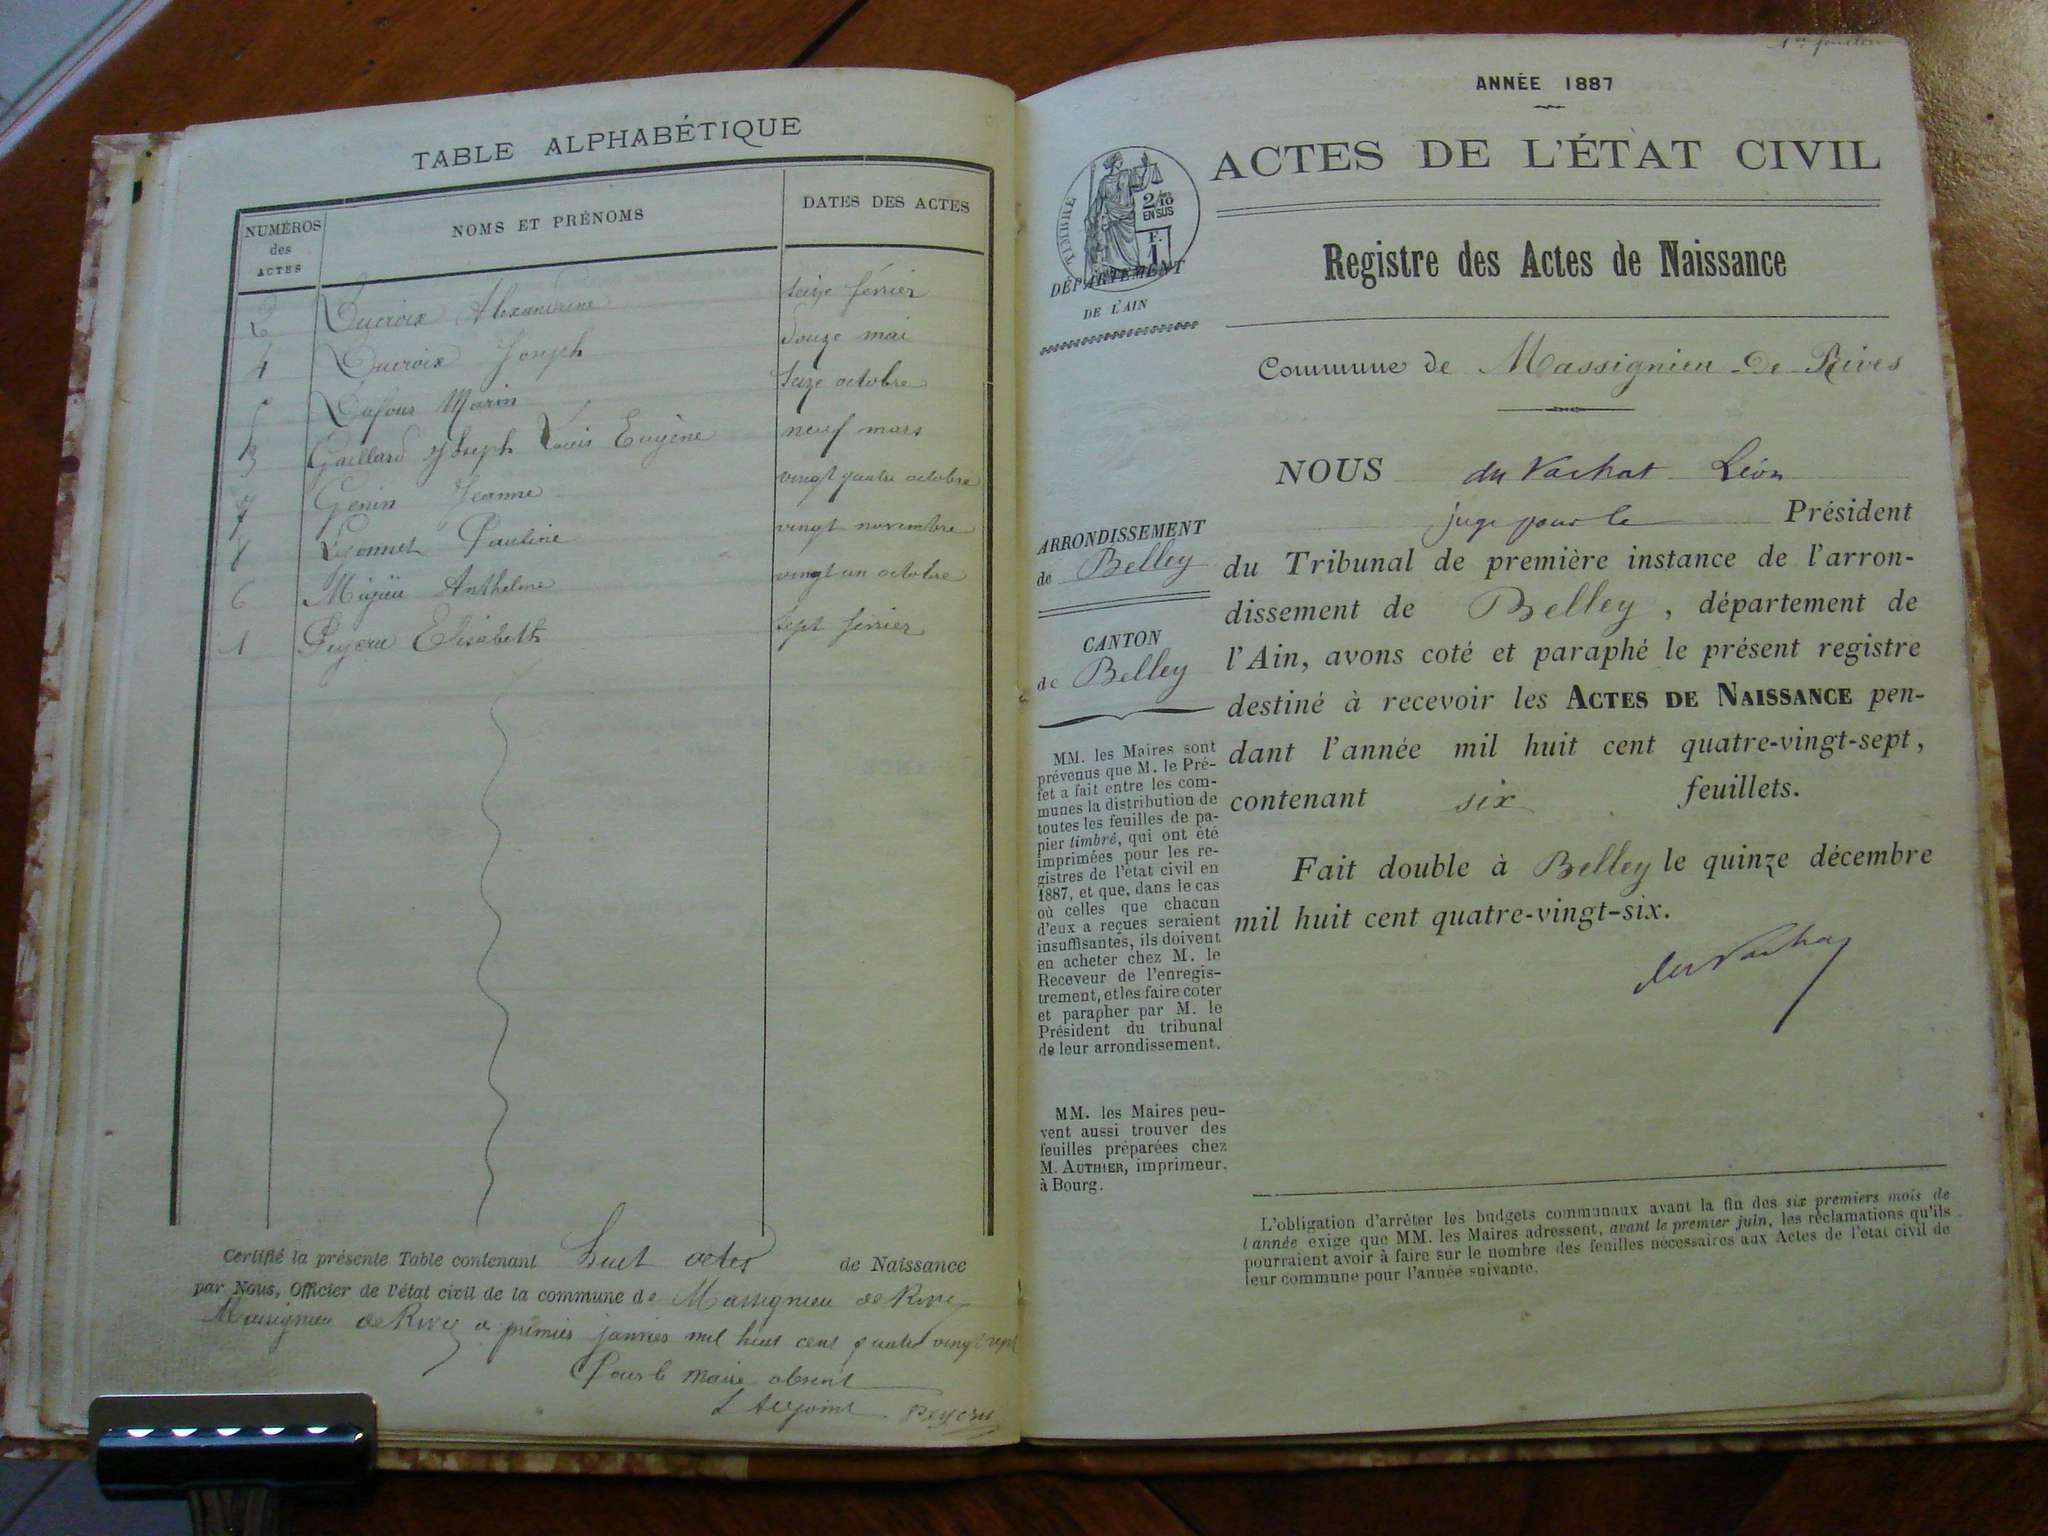 TABLE ALPHABÉTIQUE
NUMÉROS des ACTES
NOMS ET PRÉNOMS
DATES DES ACTES
2 Ducroix Alexandrine seize février
4 Ducroix Joseph douze mai
5 Dufour Marin seize octobre
3 Gaillard Joseph Louis Eugène neuf mars
7 Genin Jeanne vingt quatre octobre
8 Lyonnet Pauline vingt novembre
6 Anthelme vingt un octobre
1 Peycru Elisabeth sept février
Certifié la présente Table contenant huit actes de Naissance
par Nous, Officier de l'état civil de la commune de Massignieu de Rives
Massignieu de Rives premier janvier mil huit cent quatre vingt sept
Pour le maire absent
L'Adjoint Peycru
1er feuillet
ANNÉE 1887
ACTES DE L'ÉTAT CIVIL
TIMBRE
2/10
EN SUS
F.
1
DÉPARTEMENT
DE L'AIN
Registre des Actes de Naissance
Commune de Massignieu de Rives
NOUS du Vachat Léon
juge pour le Président
du Tribunal de première instance de l'arron-
dissement de Belley, département de
l'Ain, avons coté et paraphé le présent registre
destiné à recevoir les ACTES DE NAISSANCE pen-
dant l'année mil huit cent quatre-vingt-sept,
contenant six feuillets.
Fait double à Belley le quinze décembre
mil huit cent quatre-vingt-six.
du Vachat
ARRONDISSEMENT
de Belley
CANTON
de Belley
MM. les Maires sont
prévenus que M. le Pré-
fet a fait entre les com-
munes la distribution de
toutes les feuilles de pa-
pier timbré, qui ont été
imprimées pour les re-
gistres de l'état civil en
1887, et que, dans le cas
où celles que chacun
d'eux a reçues seraient
insuffisantes, ils doivent
en acheter chez M. le
Receveur de l'enregis-
trement, et les faire coter
et parapher par M. le
Président du tribunal
de leur arrondissement.
MM. les Maires peu-
vent aussi trouver des
feuilles préparées chez
M. AUTHIER, imprimeur.
à Bourg.
L'obligation d'arrêter les budgets communaux avant la fin des six premiers mois de
l'année exige que MM. les Maires adressent, avant le premier juin, les réclamations qu'ils
pourraient avoir à faire sur le nombre des feuilles nécessaires aux Actes de l'état civil de
leur commune pour l'année suivante.